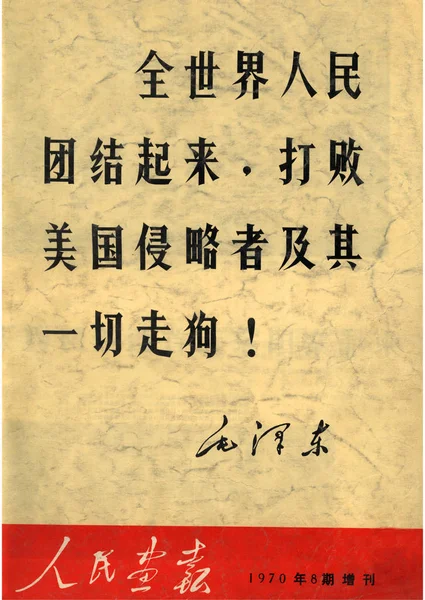 全世界人民
团结起来，打败
美国侵略者及其
一切走狗！
毛泽东
人民画报
1970年8期增刊